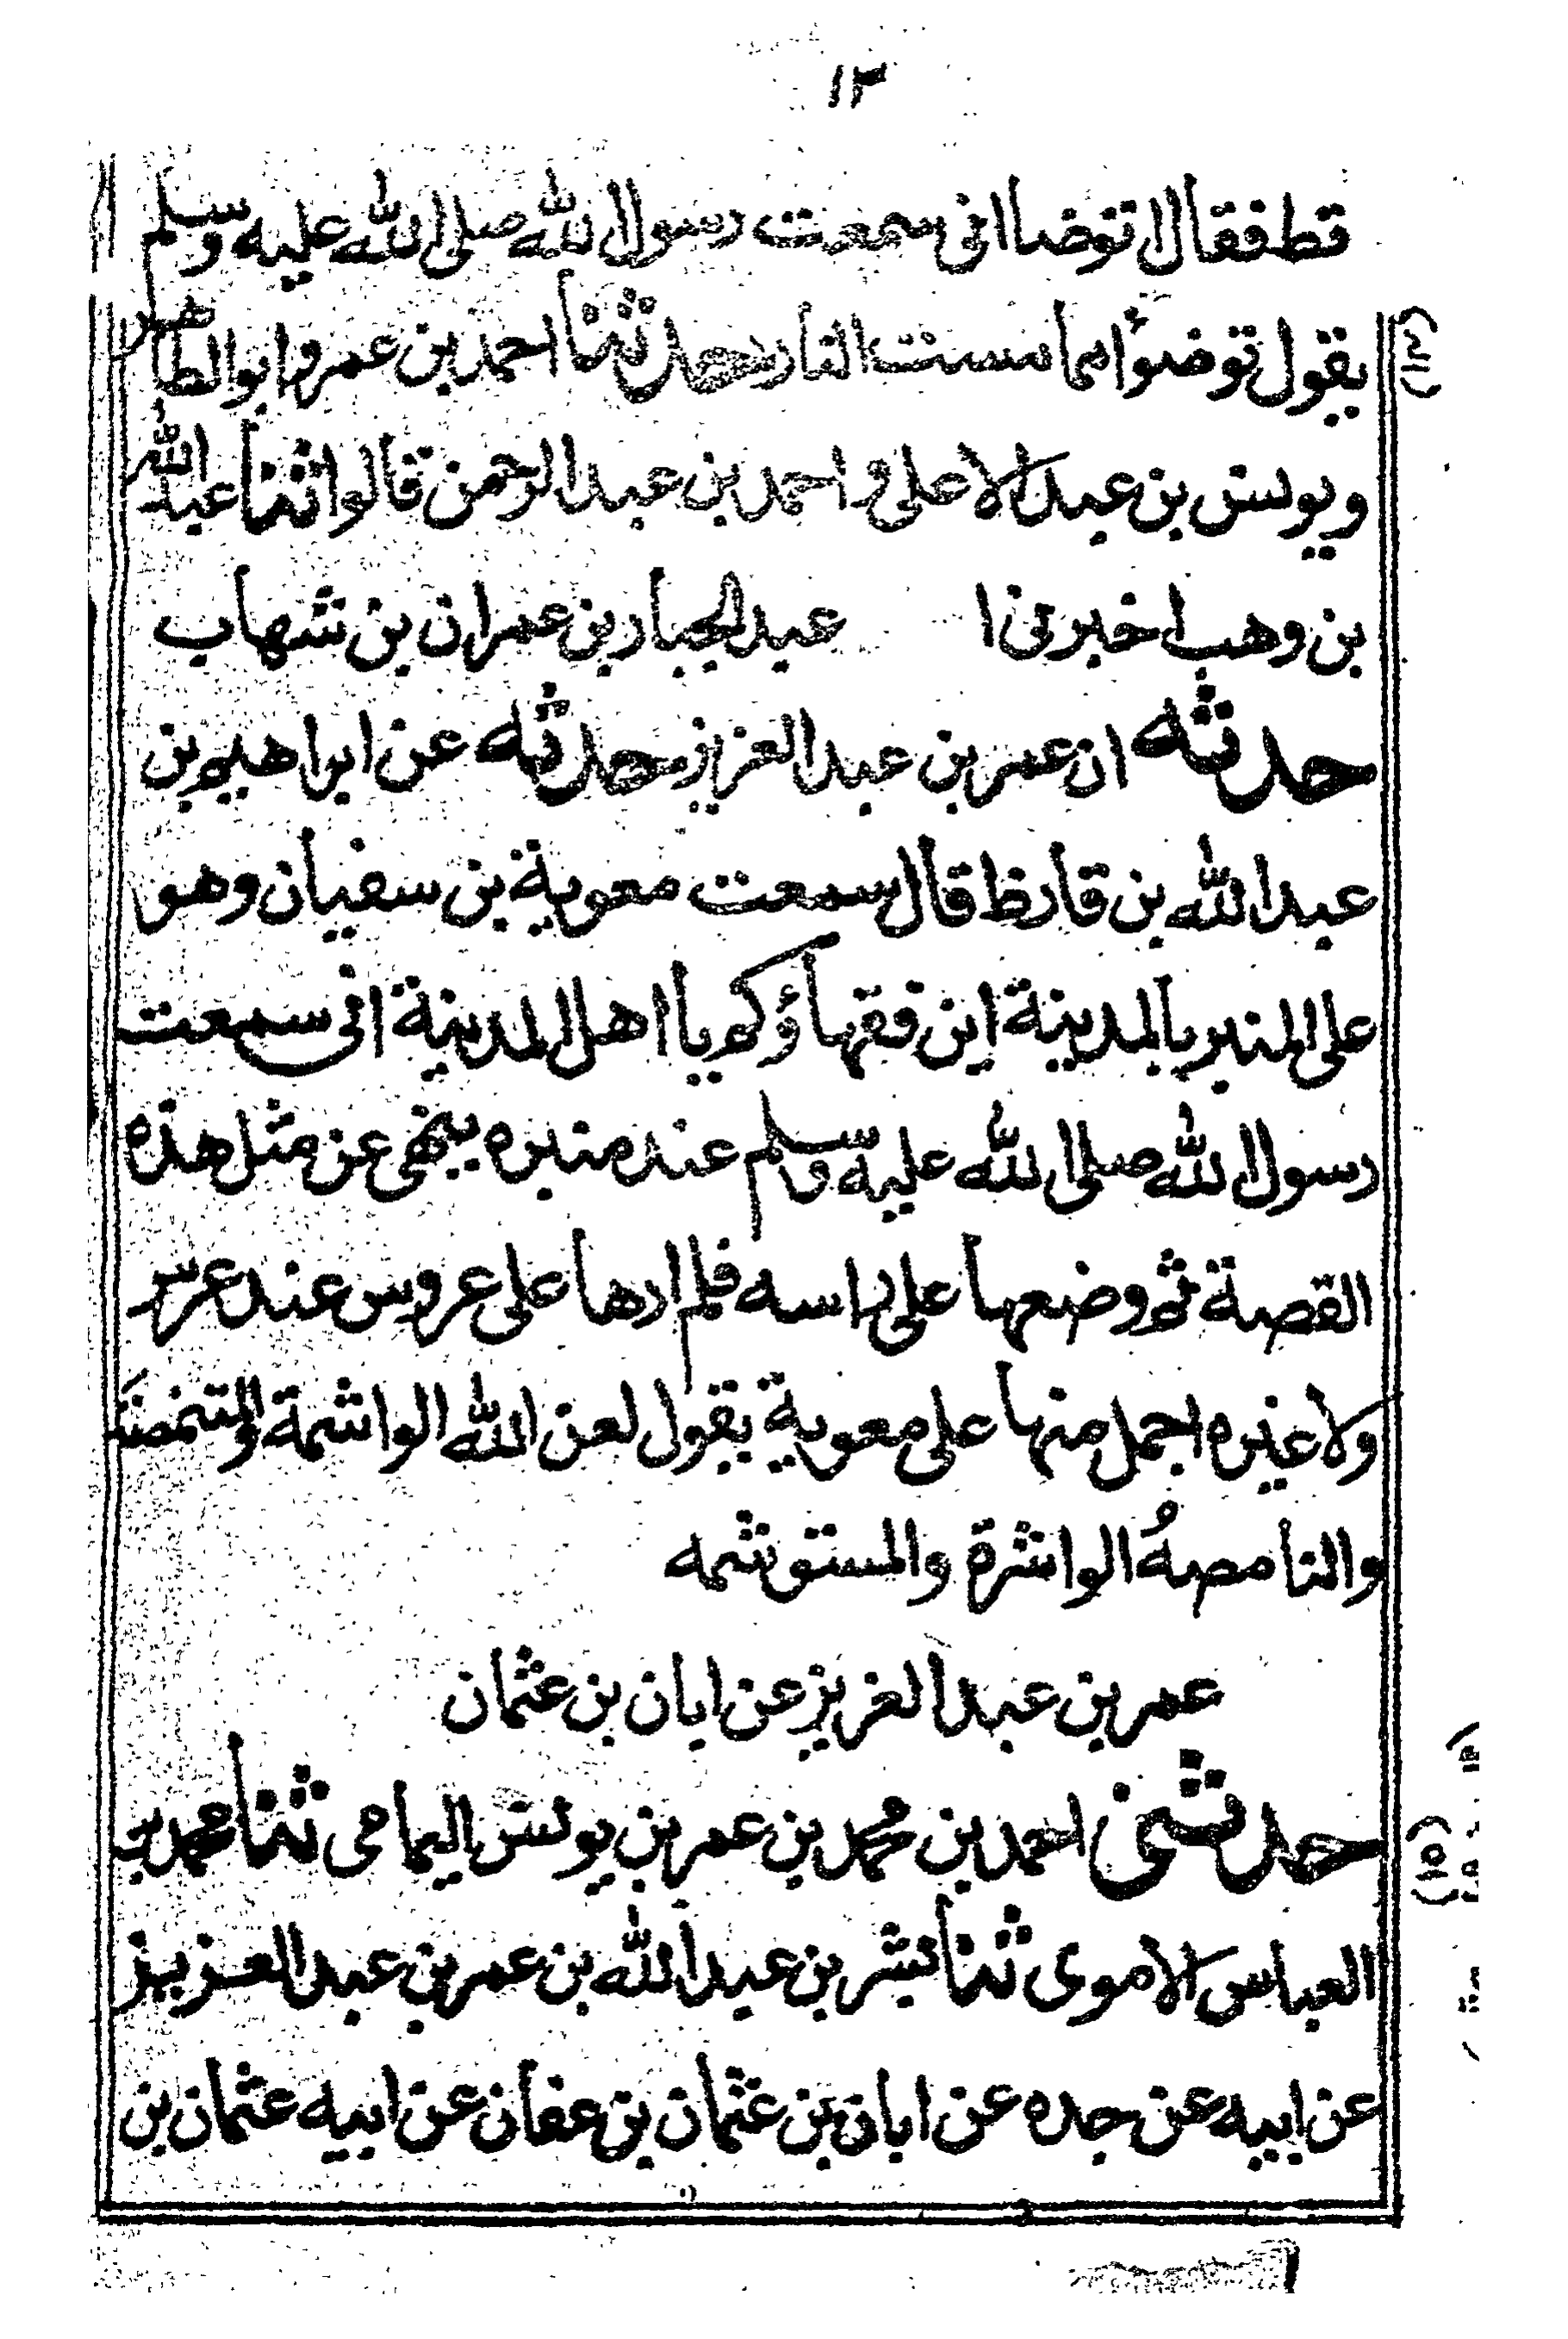 ١٣
قط فقال لا توضا انى سمعت رسول الله صلى الله عليه وسلم
يقول توضؤا مما مست النار حدثنا احمد بن عمرو ابو الطاهر
ويونس بن عبد الاعلى واحمد بن عبد الرحمن قالوا ثنا عبد الله
بن وهب اخبرنى ا عبد الجبار بن عمر ان بن شهاب
حدثه ان عمر بن عبد العزيز حدثه عن ابراهيم بن
عبد الله بن قارظ قال سمعت معوية بن سفيان وهو
على المنبر بالمدينة اين فقهاؤكم يا اهل المدينة انى سمعت
رسول الله صلى الله عليه وسلم عند منبره ينهى عن مثل هذه
القصة ثم وضعها على راسه فلم ارها على عروس عند عرس
ولا غيره اجمل منها على معوية يقول لعن الله الواشمة والمتنمصة
والنامصه الواشرة والمستوشمه
عمر بن عبد العزيز عن ابان بن عثمان
(١٥) حدثنى احمد بن محمد بن عمر بن يونس اليمامى ثنا محمد بن
العباس الاموى ثنا بشر بن عبد الله بن عمر بن عبد العزيز
عن ابيه عن جده عن ابان بن عثمان بن عفان عن ابيه عثمان بن